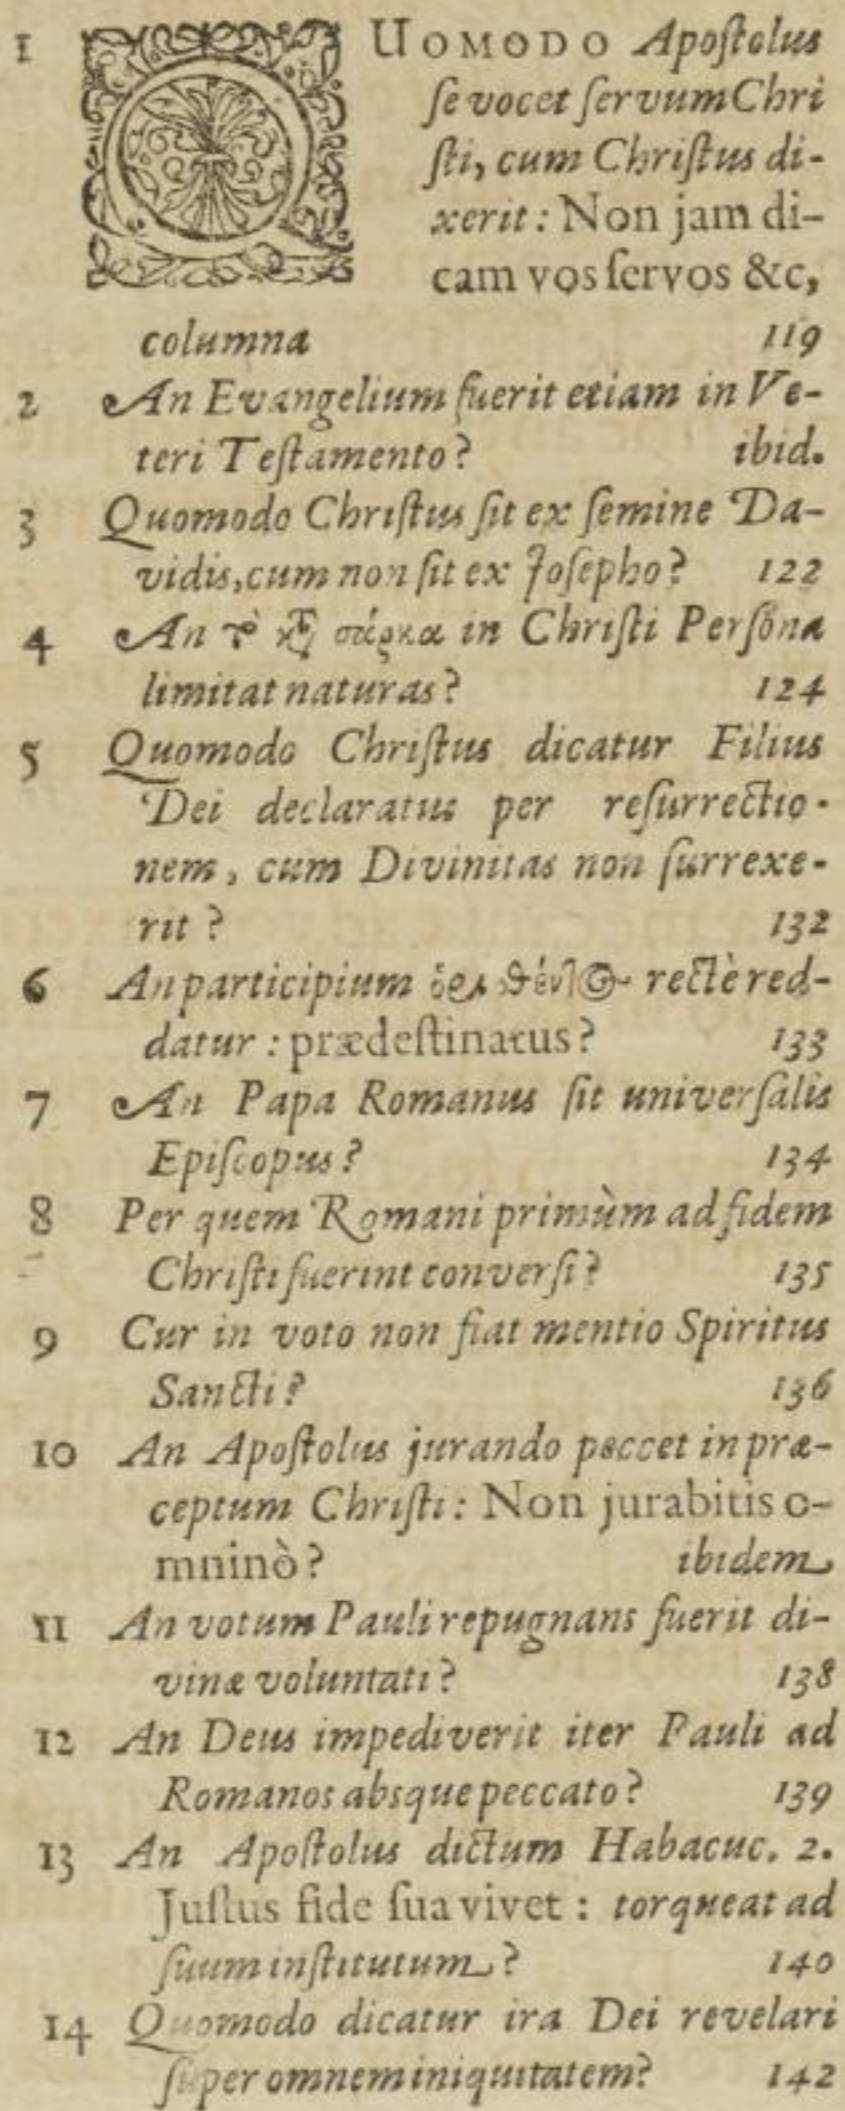 1 QUOMODO Apoſtolus
ſe vocet ſervum Chri
ſti, cum Chriſtus di-
xerit: Non jam di-
cam vos ſervos &c,
columna 119
2 An Evangelium fuerit etiam in Ve-
teri Teſtamento? ibid.
3 Quomodo Chriſtus ſit ex ſemine Da-
vidis, cum non ſit ex Joſepho? 122
4 An τὸ κϗ σάρκα in Chriſti Perſona
limitat naturas? 124
5 Quomodo Chriſtus dicatur Filius
Dei declaratus per reſurrectio-
nem, cum Divinitas non ſurrexe-
rit? 132
6 An participium ὁρισθέντος rectè red-
datur: prædeſtinatus? 133
7 An Papa Romanus ſit univerſalis
Epiſcopus? 134
8 Per quem Romani primùm ad fidem
Chriſti fuerint converſi? 135
9 Cur in voto non fiat mentio Spiritus
Sancti? 136
10 An Apoſtolus jurando peccet in præ-
ceptum Chriſti: Non jurabitis o-
mninò? ibidem
11 An votum Pauli repugnans fuerit di-
vinæ voluntati? 138
12 An Deus impediverit iter Pauli ad
Romanos absque peccato? 139
13 An Apoſtolus dictum Habacuc. 2.
Juſtus fide ſua vivet: torqueat ad
ſuum inſtitutum? 140
14 Quomodo dicatur ira Dei revelari
ſuper omnem iniquitatem? 142